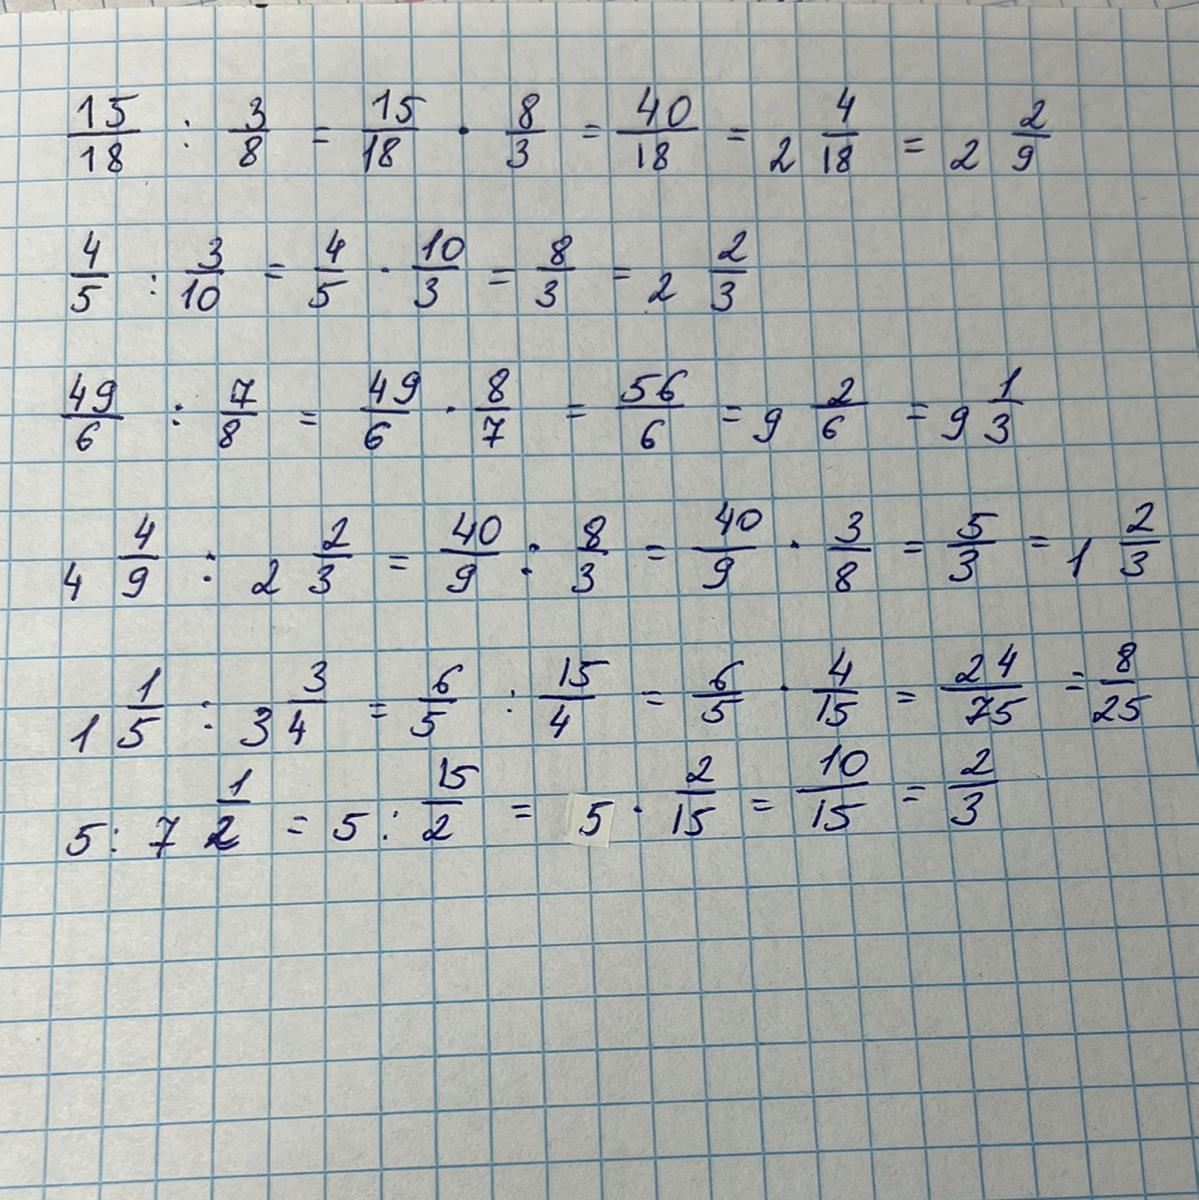 15/18 : 3/8 = 15/18 · 8/3 = 40/18 = 2 4/18 = 2 2/9
4/5 : 3/10 = 4/5 · 10/3 = 8/3 = 2 2/3
49/6 : 7/8 = 49/6 · 8/7 = 56/6 = 9 2/6 = 9 1/3
4 4/9 : 2 2/3 = 40/9 : 8/3 = 40/9 · 3/8 = 5/3 = 1 2/3
1 1/5 : 3 3/4 = 6/5 : 15/4 = 6/5 · 4/15 = 24/75 = 8/25
5 : 7 1/2 = 5 : 15/2 = 5 · 2/15 = 10/15 = 2/3